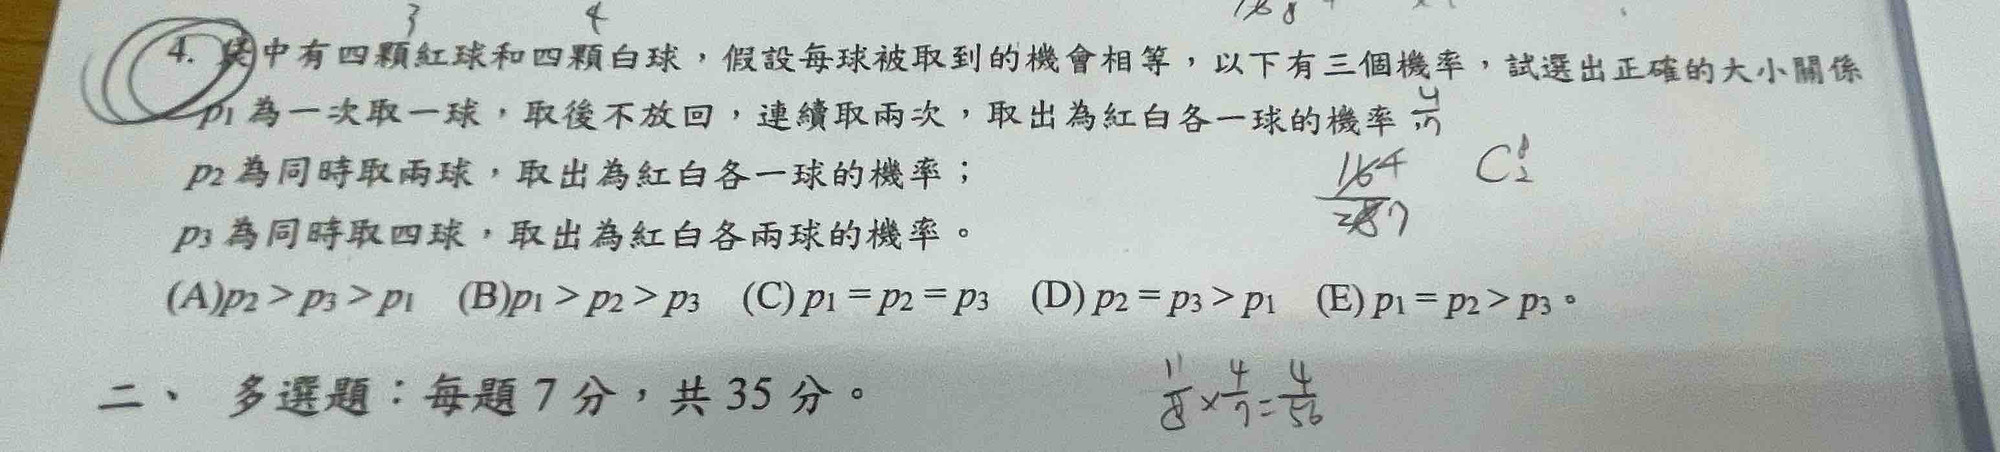 3 4
4. 袋中有四顆紅球和四顆白球，假設每球被取到的機會相等，以下有三個機率，試選出正確的大小關係
p1 為一次取一球，取後不放回，連續取兩次，取出為紅白各一球的機率
p2 為同時取兩球，取出為紅白各一球的機率；
p3 為同時取四球，取出為紅白各兩球的機率。
(A)p2 > p3 > p1 (B)p1 > p2 > p3 (C) p1 = p2 = p3 (D) p2 = p3 > p1 (E) p1 = p2 > p3。
二、 多選題：每題 7 分，共 35 分。